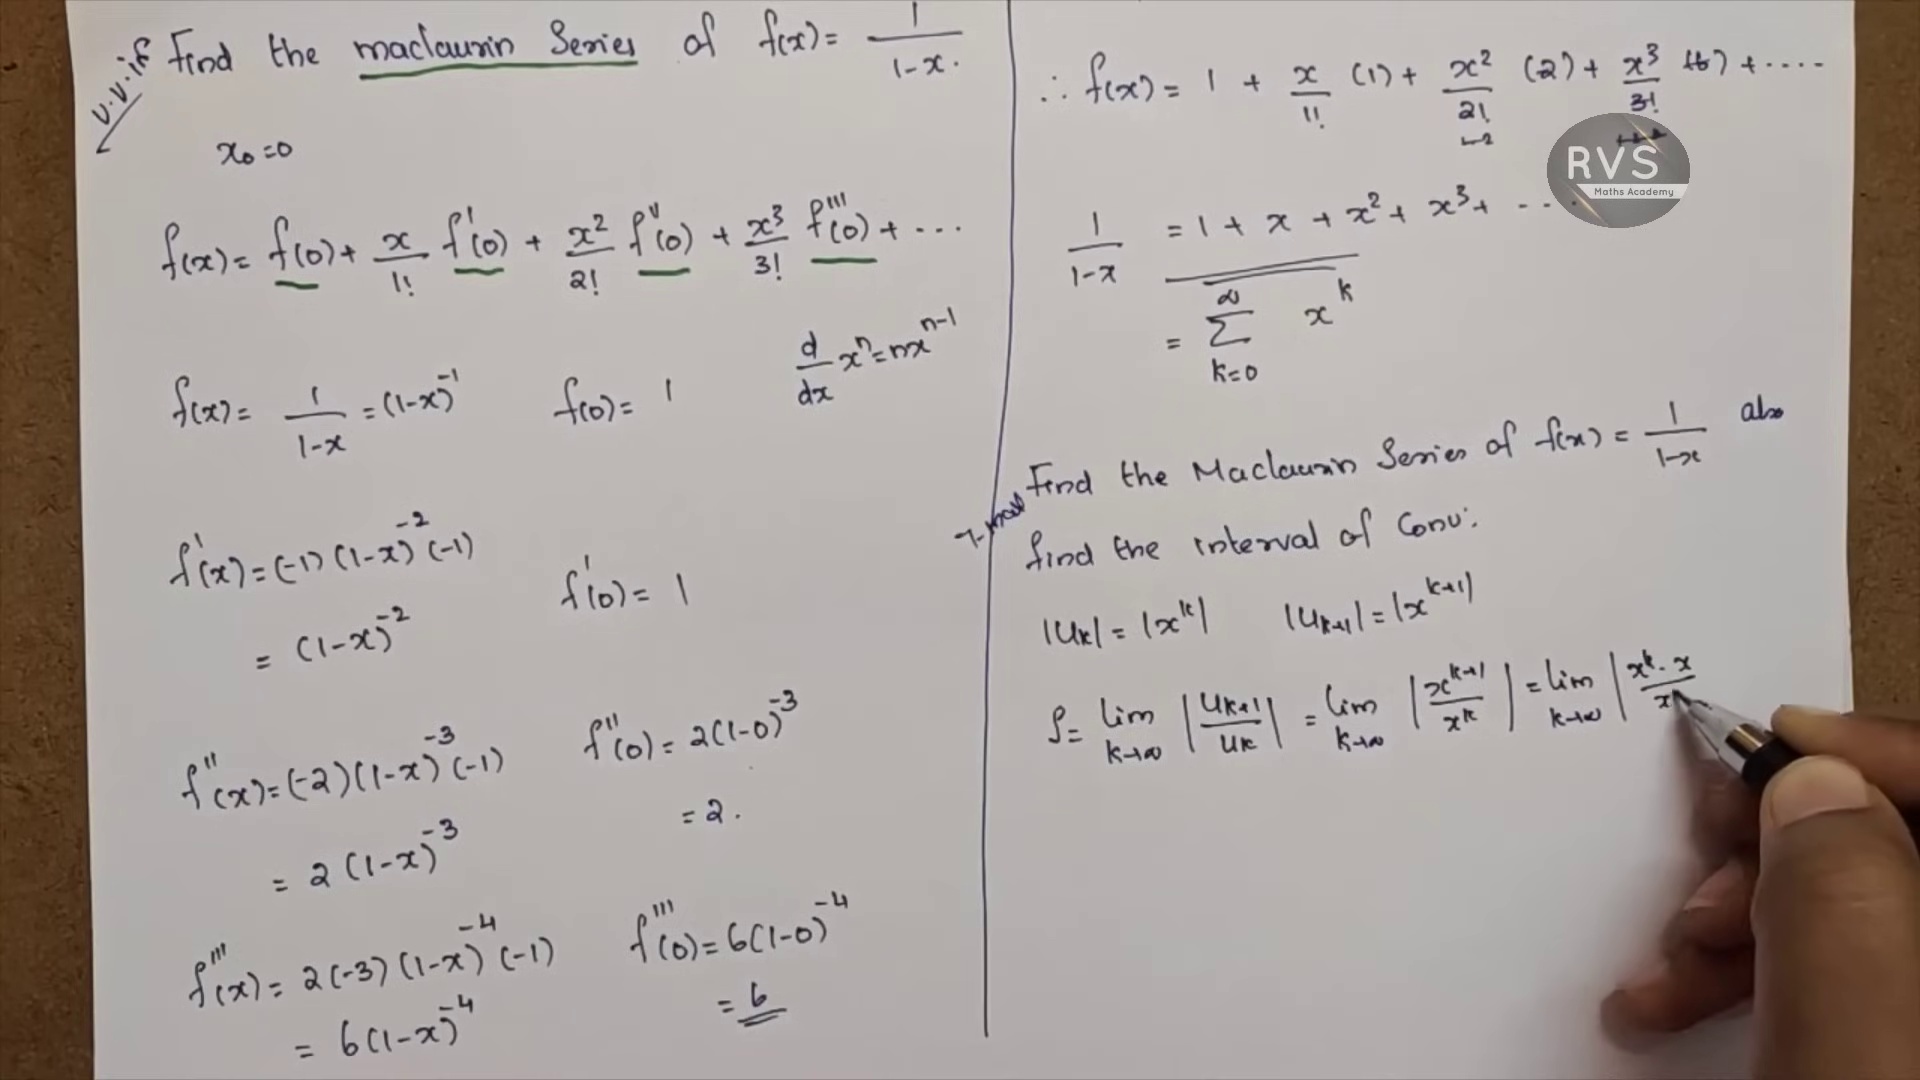 v.v.if Find the maclaurin Series of f(x) = 1/1-x.
x₀=0
f(x) = f(0) + x/1! f'(0) + x²/2! f''(0) + x³/3! f'''(0) + ...
d/dx xⁿ = nxⁿ⁻¹
f(x) = 1/1-x = (1-x)⁻¹ f(0) = 1
f'(x) = (-1)(1-x)⁻²(-1)
= (1-x)⁻² f'(0) = 1
f''(x) = (-2)(1-x)⁻³(-1) f''(0) = 2(1-0)⁻³
= 2(1-x)⁻³ = 2.
f'''(x) = 2(-3)(1-x)⁻⁴(-1) f'''(0) = 6(1-0)⁻⁴
= 6(1-x)⁻⁴ = 6
∴ f(x) = 1 + x/1! (1) + x²/2! (2) + x³/3! (6) + ....
RVS
Maths Academy
1/1-x = 1 + x + x² + x³ + ...
= ∑ k=0 ∞ xᵏ
Find the Maclaurin Series of f(x) = 1/1-x also
find the interval of Conv:
|uₖ| = |xᵏ| |uₖ₊₁| = |xᵏ⁺¹|
ρ = lim k→∞ |uₖ₊₁/uₖ| = lim k→∞ |xᵏ⁺¹/xᵏ| = lim k→∞ |xᵏ.x/x